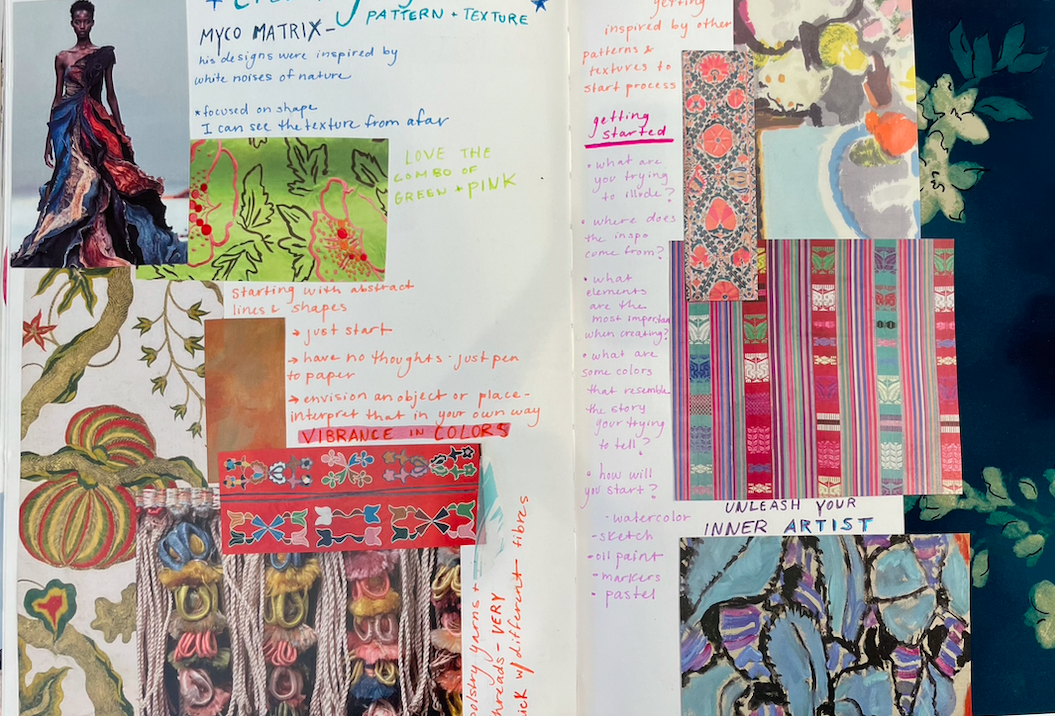 PATTERN + TEXTURE
MYCO MATRIX-
his designs were inspired by
white noises of nature
*focused on shape
I can see the texture from afar
LOVE THE
COMBO OF
GREEN + PINK
starting with abstract
lines & shapes
→ just start
→ have no thoughts - just pen
to paper
→ envision an object or place -
interpret that in your own way
VIBRANCE IN COLORS
yarns +
threads - VERY
w/ different fibres
getting
inspired by other
patterns &
textures to
start process
getting
started
• what are
you trying
to illude?
• where does
the inspo
come from?
• what
elements
are the
most important
when creating?
• what are
some colors
that resemble
the story
your trying
to tell?
• how will
you start?
- watercolor
- sketch
- oil paint
- markers
- pastel
UNLEASH YOUR
INNER ARTIST